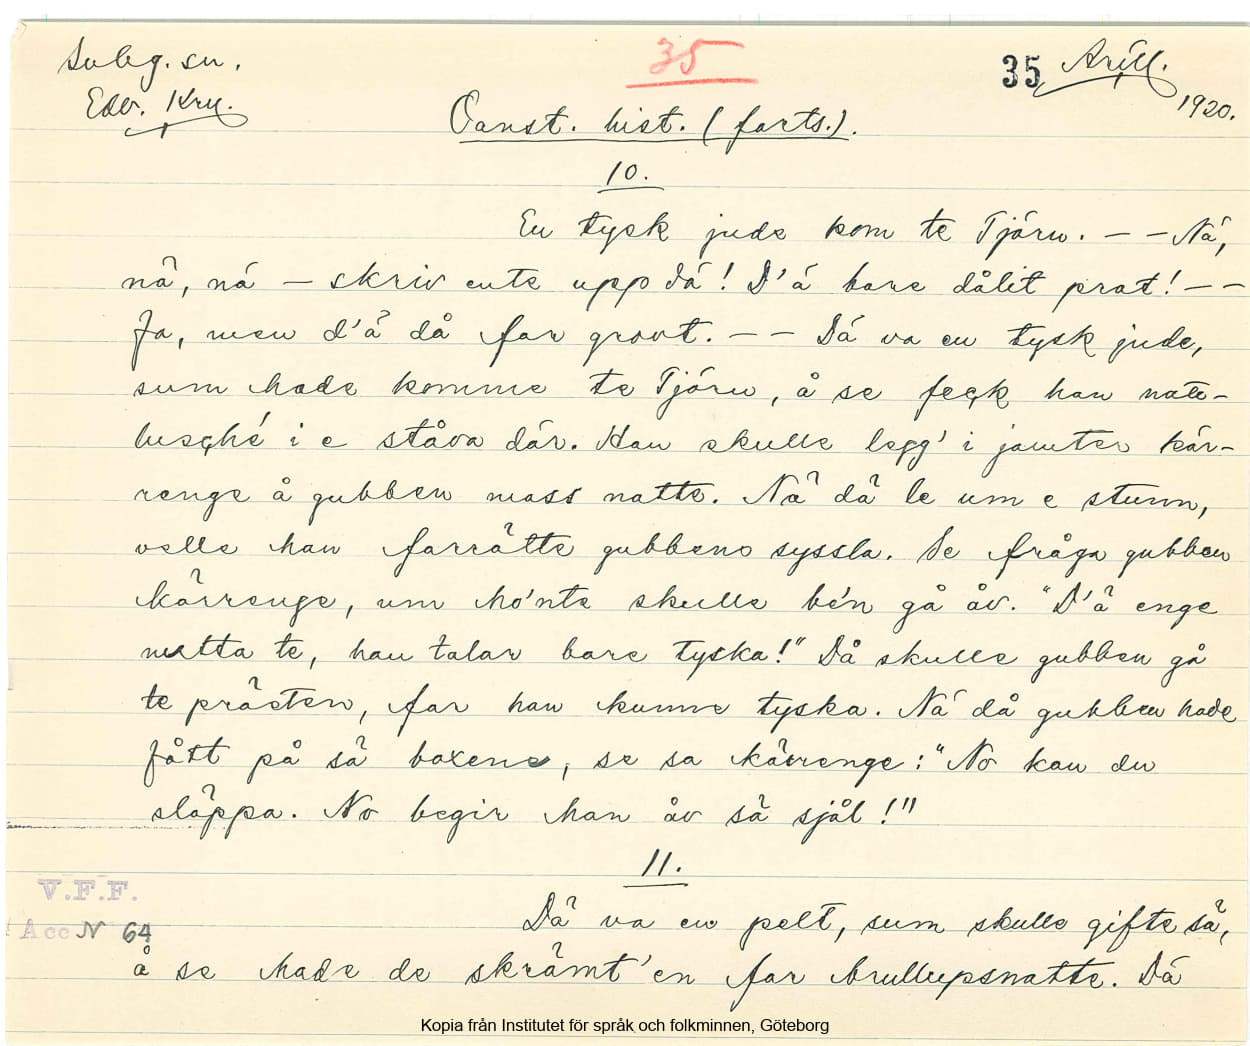 Soleg. sn.
35
35 Arill.
Edv. Kru.
1920.
Oanst. hist. (farts.).
10.
En tysk jude kom te Tjörn. — — Nä,
nä, nä — skriv ente upp dä! D'ä bare dålit prat! — —
Ja, men d'ä då far grovt. — — Dä va en tysk jude,
sum hade komme te Tjörn, å se feçk han natte-
husçhé i e ståva där. Han skulle legg' i jamter kär-
renge å gubben mass natte. Nä dä le um e stunn,
velle han farrätte gubbens syssla. Se fråga gubben
kärrenge, um ho'nte skulle be'n gå åv. "D'ä enge
nutta te, han talar bare tyska!" Då skulle gubben gå
te prästen, far han kunne tyska. Nä då gubben hade
fått på sä boxene, se sa kärrenge: "No kan du
släppa. No begir han åv sä sjål!"
11.
Dä va en pelt, sum skulle gifte sä,
å se hade de skrämt'en far brullupsnatte. Dä
V.F.F.
Acc N 64
Kopia från Institutet för språk och folkminnen, Göteborg